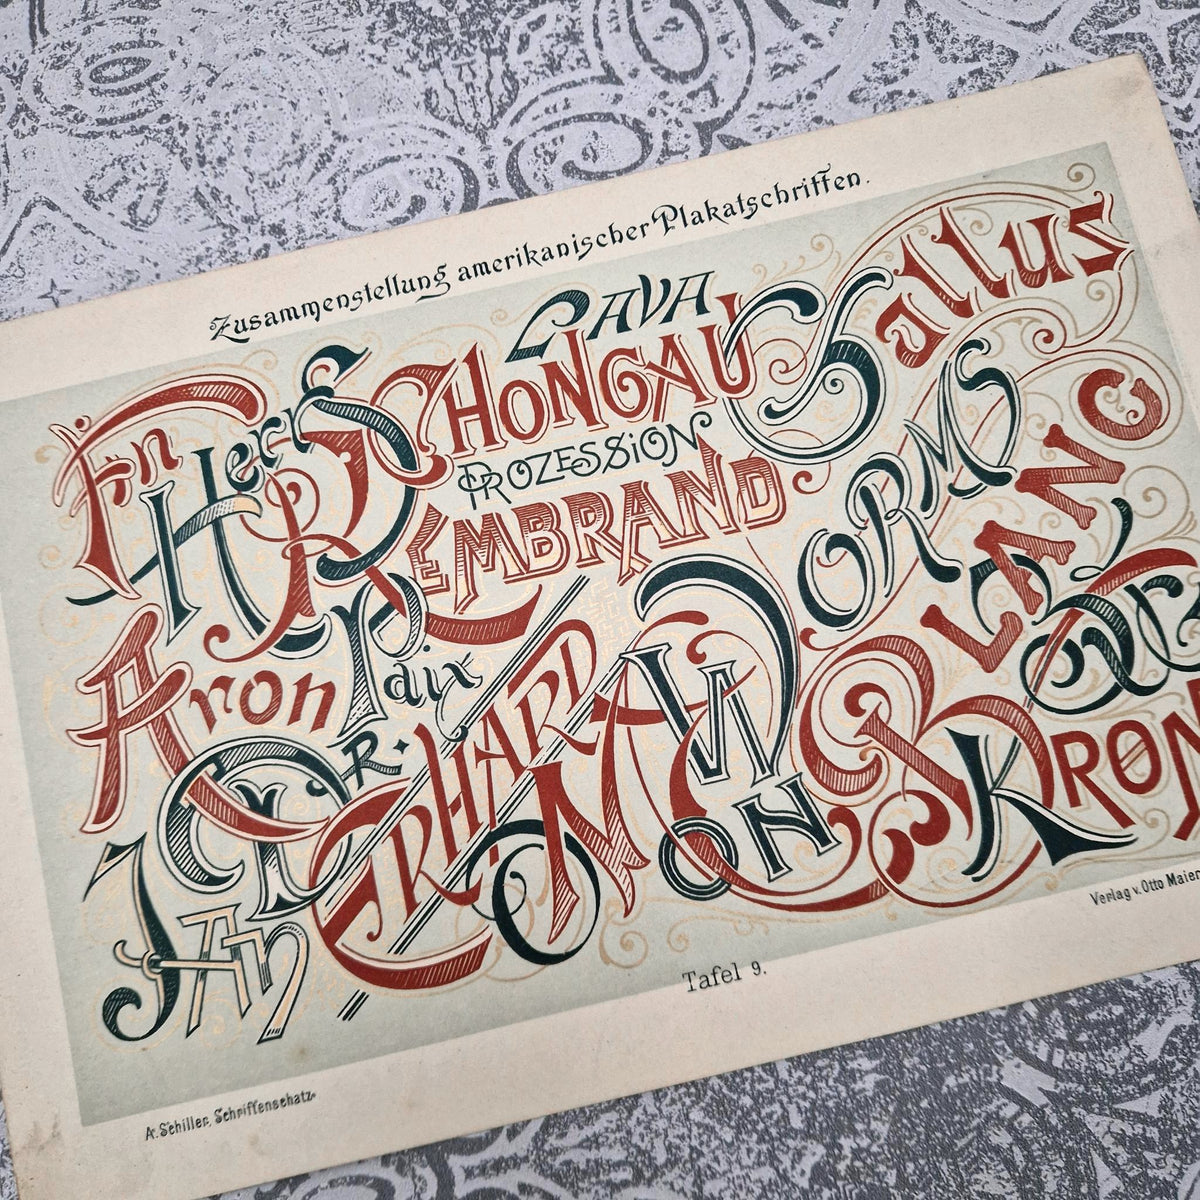 Zusammenstellung amerikanischer Plakatschriften.
LAVA
SCHONGAU
Sallus
Fn
Herr
PROZESSION
REMBRAND
WORMS
BLANC
Aron
Paix
DR.
ERHARD
VON
KRON
JAN
Tafel 9.
A. Schiller, Schriftenschatz
Verlag v. Otto Maier